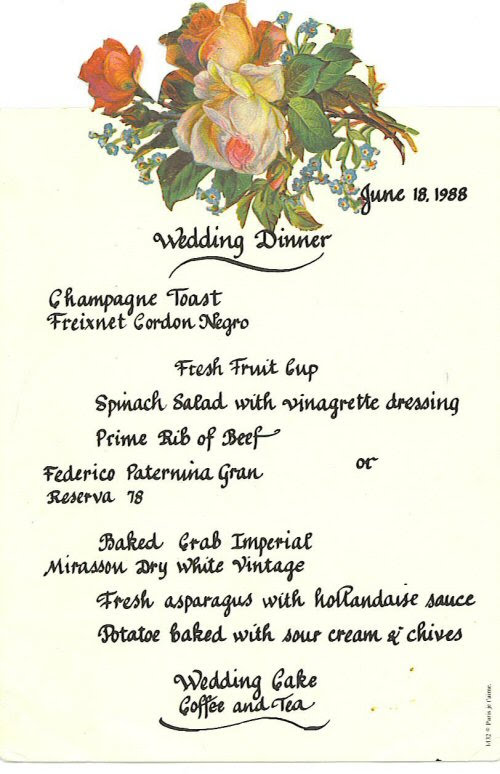 June 18, 1988
Wedding Dinner
Champagne Toast
Freixnet Cordon Negro
Fresh Fruit Cup
Spinach Salad with vinagrette dressing
Prime Rib of Beef
or
Federico Paternina Gran
Reserva 78
Baked Crab Imperial
Mirasson Dry White Vintage
Fresh asparagus with hollandaise sauce
Potatoe baked with sour cream & chives
Wedding Cake
Coffee and Tea
1432 © Paris je t'aime.